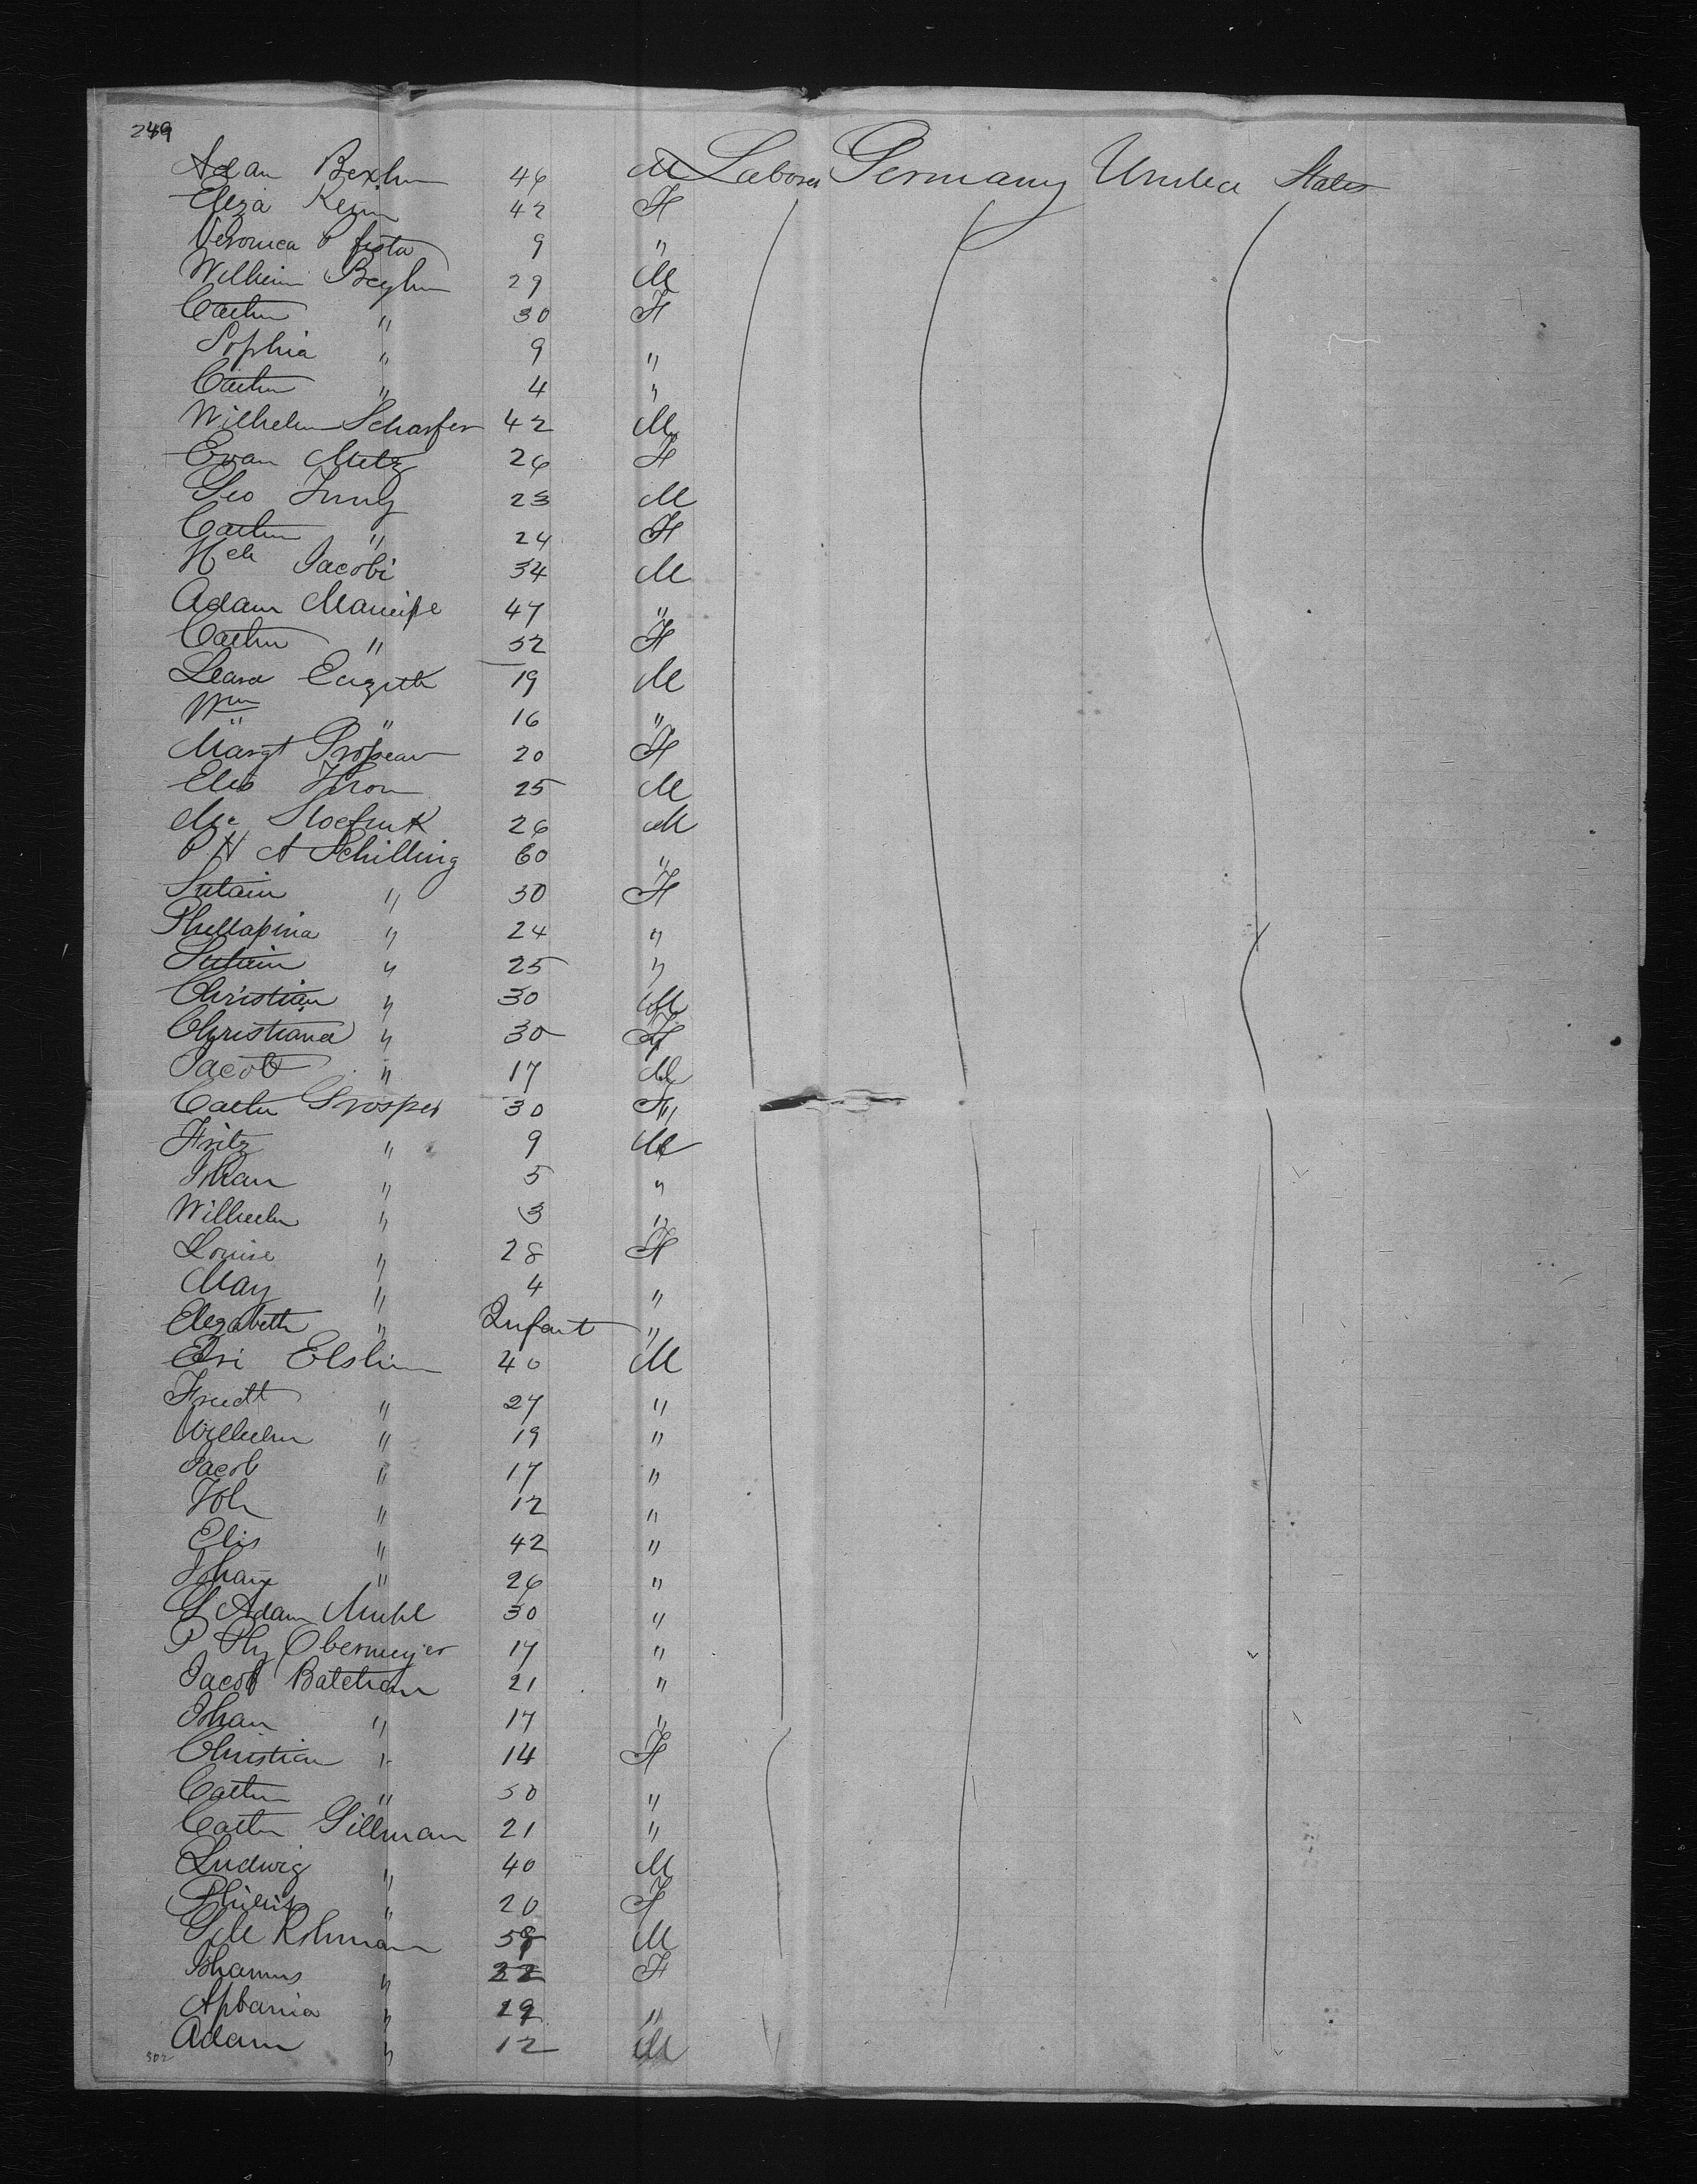 249
Adam Bexhm 46 M Laborer Germany United States
Eliza Keim 42 F
Veronica Pfista 9 "
Wilheim Beylm 29 M
Cathn " 30 F
Sophia " 9 "
Cathn " 4 "
Wilhelm Scharfer 42 M
Evan Metz 26 F
Geo Jung 23 M
Cathn " 24 F
Hch Jacobi 34 M
Adam 47 "
Cathn " 52 F
19 M
Wm " 16 "
Margt 20 F
Elis Thron 25 M
26 M
P H A Schilling 60 "
" 30 F
Phillapina " 24 "
" 25 "
Christian " 30 M
Christiana " 30 F
Jacob " 17 M
Cathn Prosper 30 F
Fritz " 9 M
Johan " 5 "
Wilhelm " 3 "
Louise " 28 F
Mary " 4 "
Elezabeth " Infant "
Elslin 40 M
Friedt " 27 "
Wilhelm " 19 "
Jacob " 17 "
Joh " 12 "
Elis " 42 "
Johan " 26 "
G Adam Muhl 30 "
P Phy Obermeyer 17 "
Jacob Batchan 21 "
Johan " 17 "
Christian " 14 F
Cathn " 50 "
Cathn Gillman 21 "
Ludwig " 40 M
" 20 F
Rohmann 58 M
Johannes " 22 F
Apbania " 19 "
Adam " 12 M
302